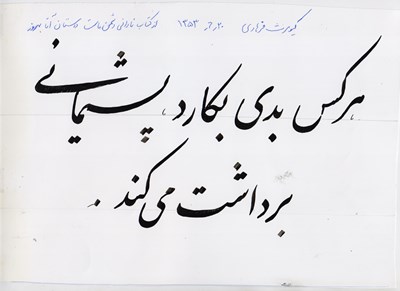 کیومرث فرهادی ۲۰ مهر ۱۳۵۳ از کتاب نادانی دشمن ماست داستان آقا بهروز
هر کس بدی بکارد، پشیمانی
برداشت می کند.